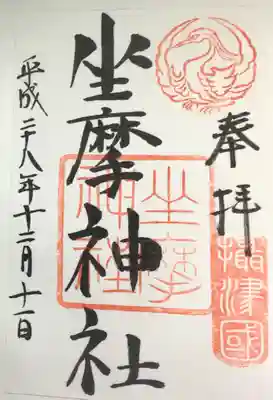 奉拝
攝津國
坐摩神社
坐摩神社
平成二十八年十二月十一日